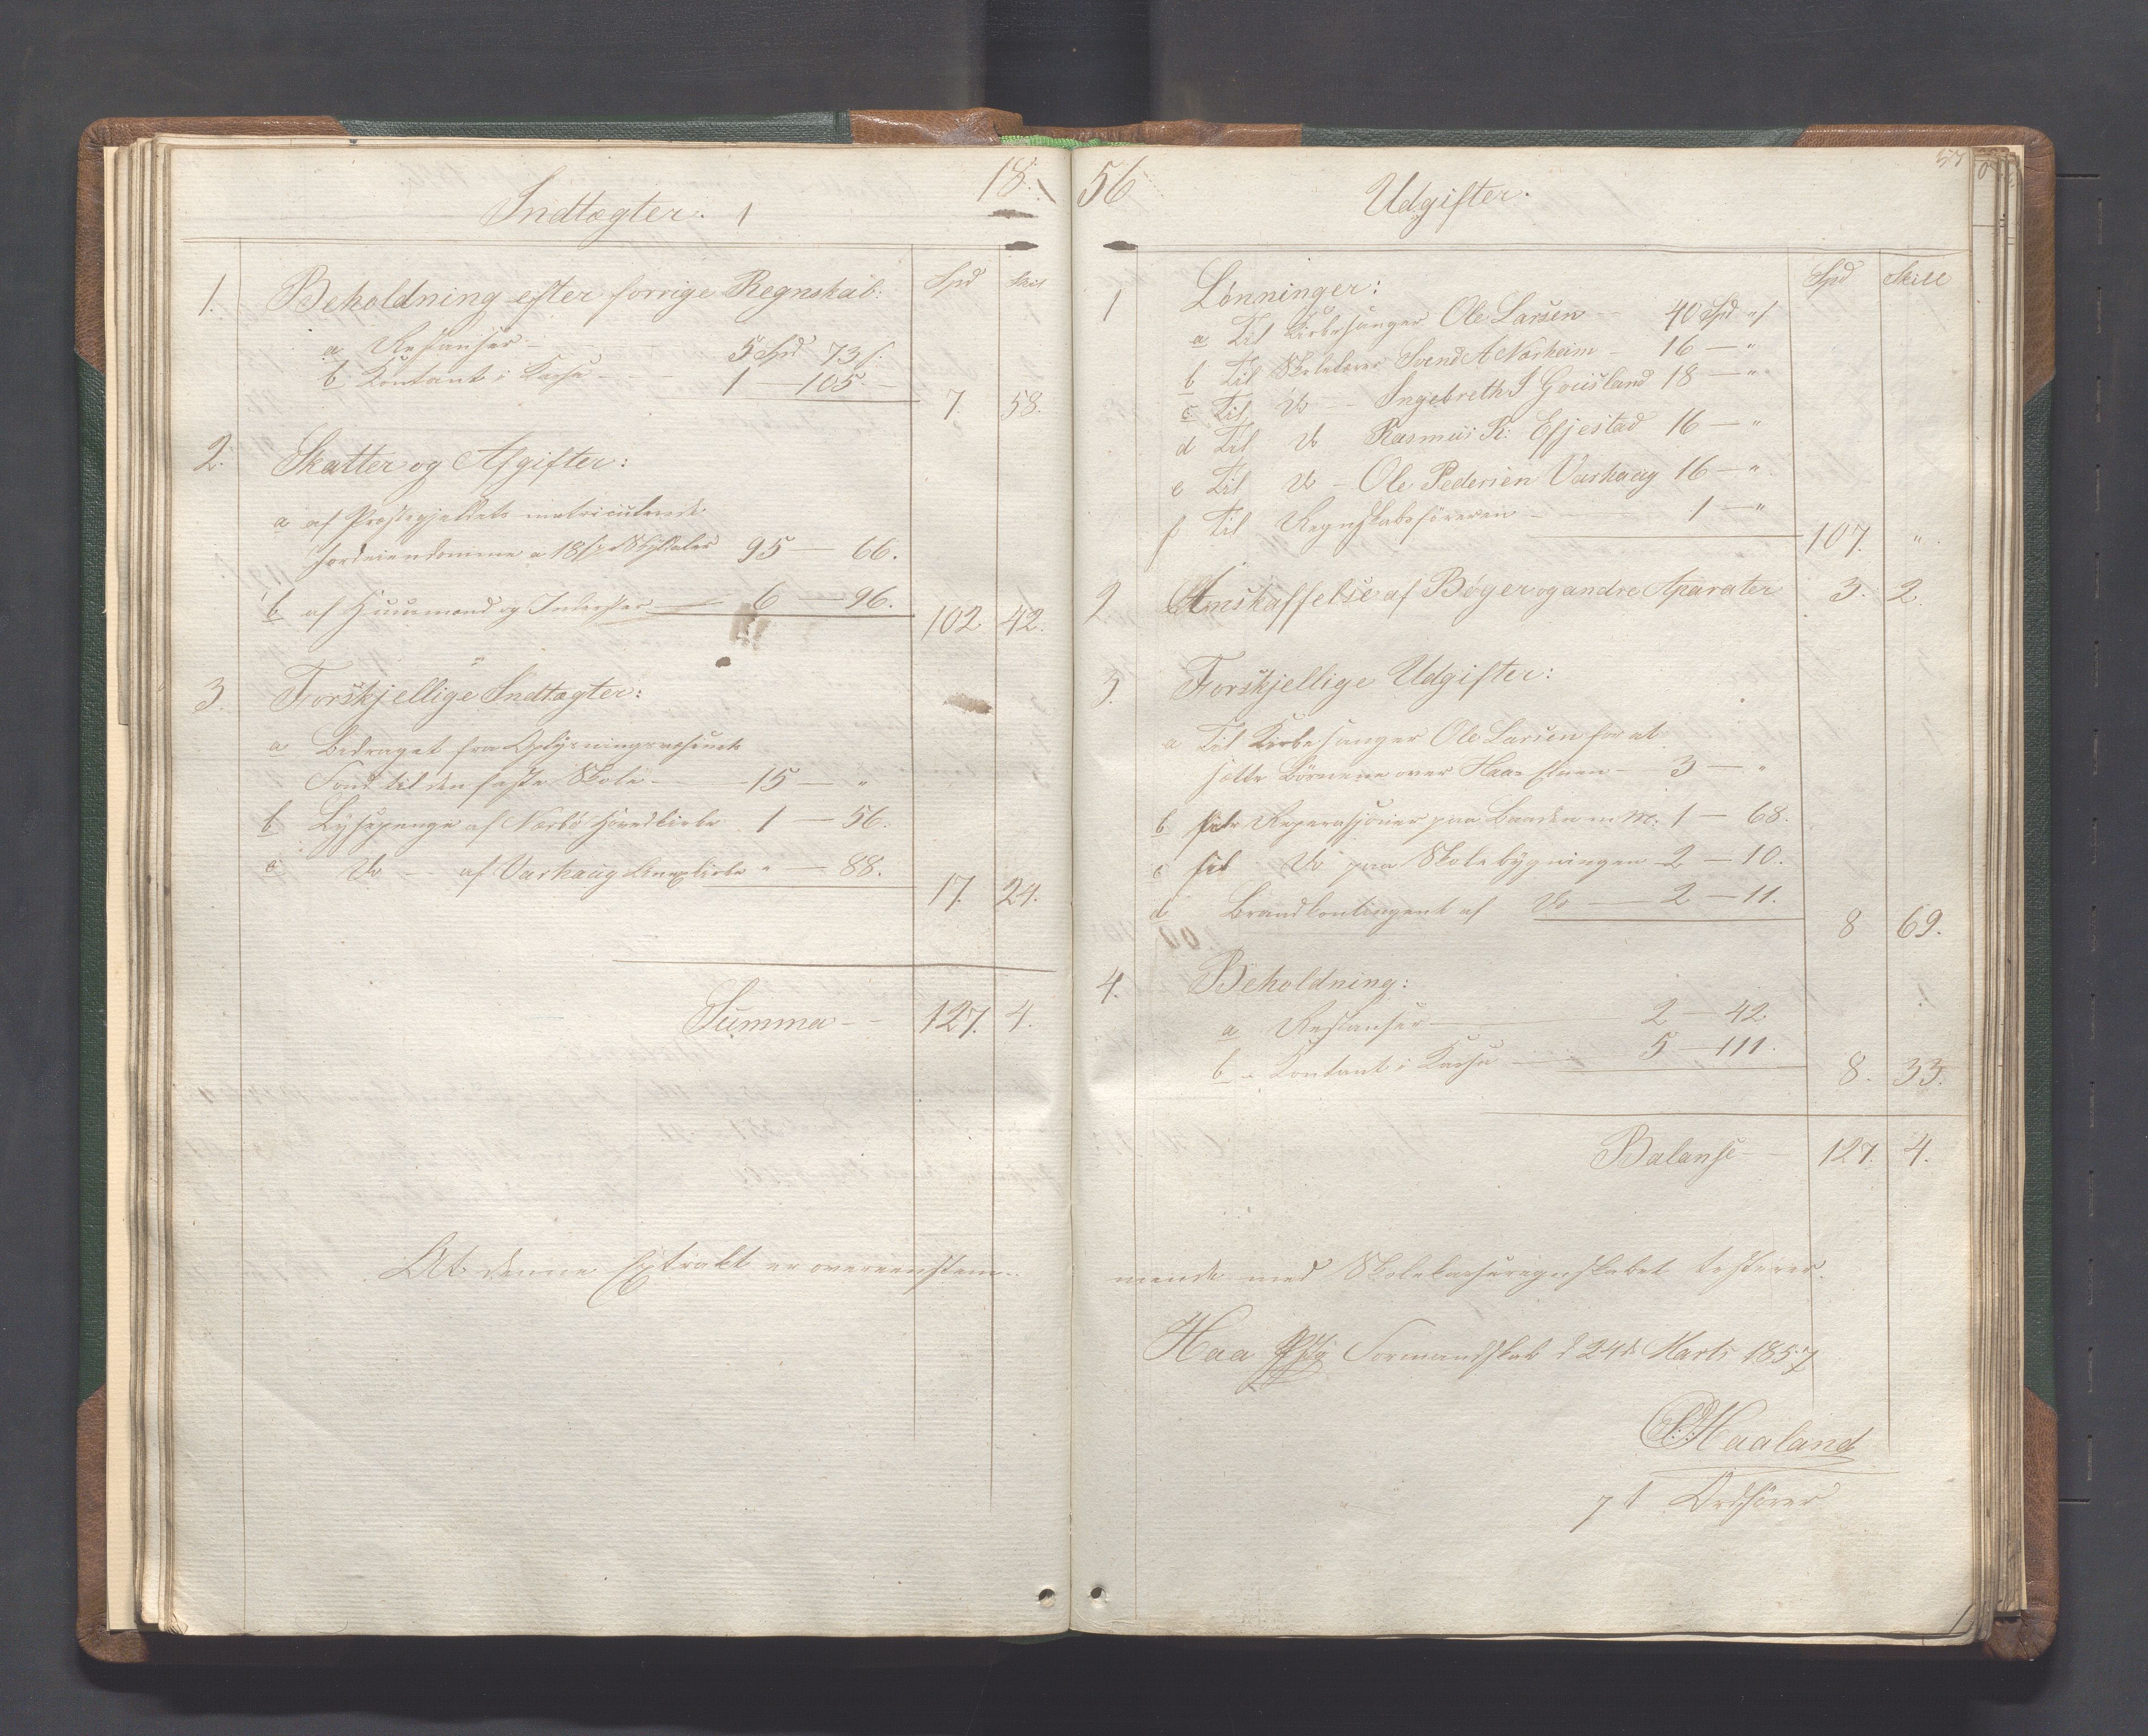 18
Indtægter.
Spd Skil
1. Beholdning efter forrige Regnskab:
a Restanser - 5 Spd 73 s.
b Kontant i Kasse - 1 - 105.
7. 58.
2. Skatter og Afgifter:
a af Præstegjeldets matriculerede
Jordeiendomme a 18 s pr Skylddaler 95 - 66.
b af Huusmænd og Inderster - 6 - 96.
102. 42.
3. Forskjellige Indtægter:
a Bidraget fra Oplysningsvæsenets
Fond til den faste Skole - 15 - "
b Lysepenge af Nærbø Hovedkirke 1 - 56.
c Do - af Varhaug Annexkirke " - 88.
17. 24.
Summa - 127. 4.
At denne Extrakt er overeenstem-
56
57
Udgifter.
Spd Skill
1 Lønninger:
a Til Kirkesanger Ole Larsen - 40 Spd " s
b Til Skolelærer Svend A Nærheim - 16 - "
c Til Do - Ingebreth S Goiisland 18 - "
d Til Do Rasmus R. Efjestad 16 - "
e Til Do - Ole Pedersen Varhaug 16 - "
f Til Regnskabsføreren - 1 - "
107. "
2 Anskaffelse af Bøger og andre Aparater 3. 2.
3. Forskjellige Udgifter:
a Til Kirkesanger Ole Larsen for at
sætte Børnene over Haae Elven - 3 - "
b Reperasjoner paa Baaden m. M. 1 - 68.
c Do paa Skolebygningen - 2 - 10.
d Brandkontingent af Do - 2 - 11.
8 69.
4. Beholdning:
a Restanser - 2 - 42.
b Kontant i Kasse - 5 - 111.
8. 33.
Balanse - 127. 4.
mende med Skolekasseregnskabet testerer.
Haa Formandskab d 24de Marts 1857
Haaland
Ordfører